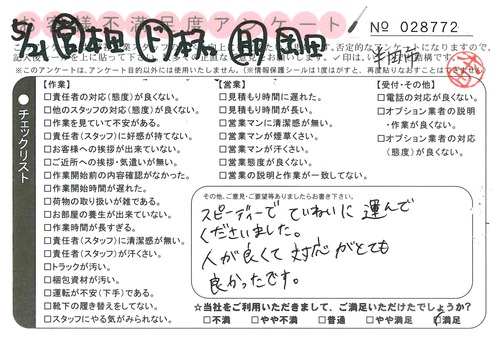 お客様不満足度アンケート
№ 028772
5/21
半田市
チェックリスト
【作業】
□責任者の対応(態度)が良くない。
□他のスタッフの対応(態度)が良くない。
□作業を見ていて不安がある。
□責任者(スタッフ)に好感が持てない。
□お客様への挨拶が出来ていない。
□ご近所への挨拶・気遣いが無い。
□作業開始前の内容確認がなかった。
□作業開始時間が遅れた。
□荷物の取り扱いが雑である。
□お部屋の養生が出来ていない。
□作業時間が長すぎる。
□責任者(スタッフ)に清潔感が無い。
□責任者(スタッフ)が汗くさい。
□トラックが汚い。
□梱包資材が汚い。
□運転が不安(下手)である。
□靴下の履き替えをしてない。
□スタッフにやる気がみられない。
【営業】
□見積もり時間に遅れた。
□見積もり時間が長い。
□営業マンに清潔感が無い。
□営業マンが煙草くさい。
□営業マンが汗くさい。
□営業態度が良くない。
□営業の説明と作業が一致してない。
【受付・その他】
□電話の対応が良くない。
□オプション業者の説明
・作業が良くない。
□オプション業者の対応
(態度)が良くない。
その他、ご意見・ご要望等ありましたらお書き下さい。
スピーディーで ていねいに 運んで
くださいました。
人が良くて 対応がとても
良かったです。
☆当社をご利用いただきまして、ご満足いただけたでしょうか?
□不満 □やや不満 □普通 □やや満足 □満足